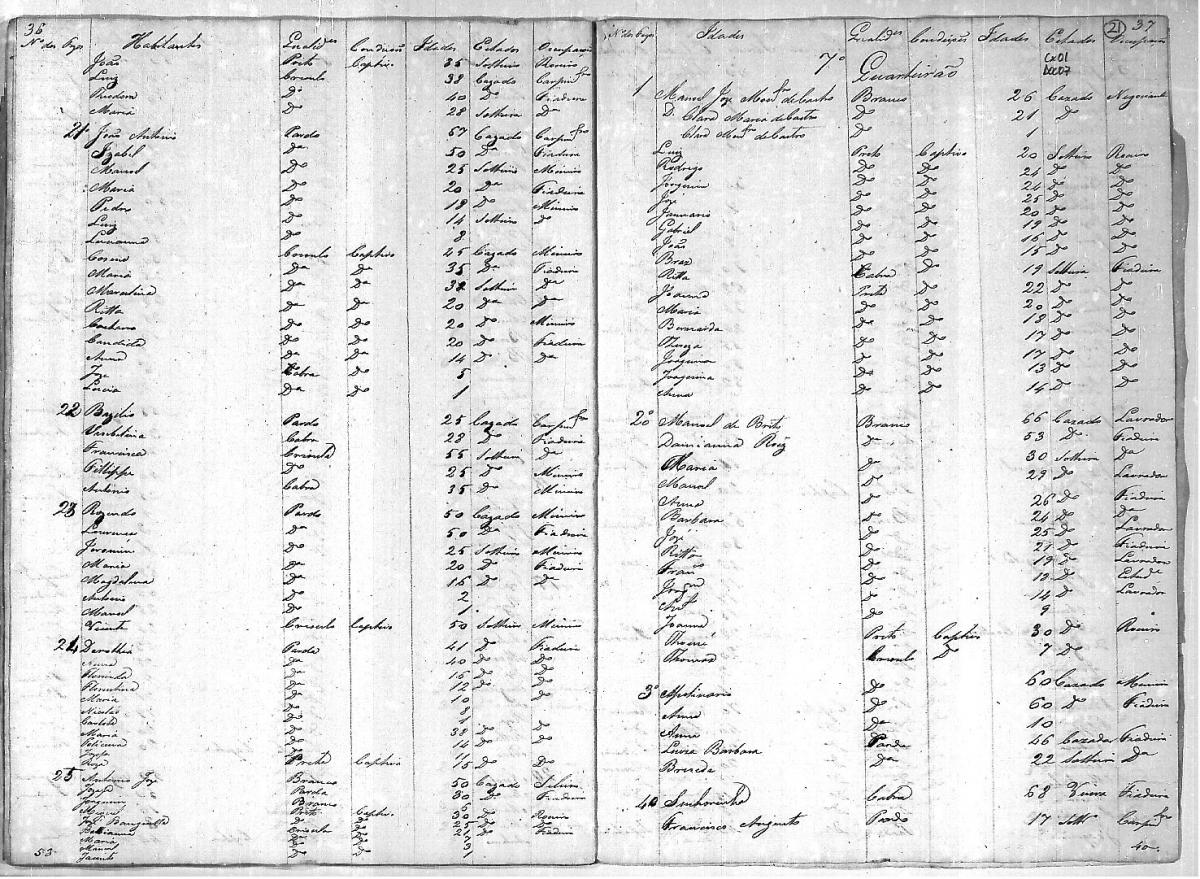 36
Nos dos Fogos Habitantes Qualides Condições Idades Estados Ocupação
João Preto Captivo 35 Solteiro Roceiro
Luiz Crioulo 38 Cazado Carpinro
Theodora Do 40 Do Fiadeira
Maria Do 28 Solteira Da
21 João Antonio Pardo 57 Cazado Carpinro
Izabel Da 50 Da Fiadeira
Manoel Do 25 Solteiro Mineiro
Maria Do 20 Da Fiadeira
Pedro Do 18 Do Mineiro
Luiz Do 14 Solteiro Do
Luciana Do 8
Cosme Crioulo Captivo 25 Cazado Mineiro
Maria Da Da 35 Da Fiadeira
Marcelina Da Do 32 Solteira Da
Ritta Da Do 20 Da Da
Caetano Do Do 20 Do Mineiro
Candida Do Do 20 Do Fiadeira
Anna Da Do 14 Do Da
Joze Cabra Do 5
Lucia Da Do 1
22 Bazilio Pardo 25 Cazado Carpinro
Cabra 22 Do Fiadeira
Francisca Crioula 55 Solteira Da
Fillippe Do 25 Do Mineiro
Antonio Cabra 35 Do Mineiro
23 Rozendo Pardo 50 Cazado Mineiro
Lourença Da 50 Da Fiadeira
Jeremias Do 25 Solteiro Mineiro
Maria Da 20 Da Fiadeira
Magdalena Da 16 Do Da
Antonio Do 2
Manoel Do 1
Vicente Crioulo Captivo 50 Solteiro Mineiro
24 Dorothea Parda 41 Do Fiadeira
Anna Da 40 Do Do
Florinda Da 16 Do Do
Florentina Da 12 Do Do
Maria Do 10 Do
Nicolao Do 8
Do 1
Maria Do 38 Do Do
Policena Do 14 Do Do
Jozefa Do 1
Roza Preta Captiva 16 Do Do
25 Antonio Joze Branco 50 Cazado Seleiro
Jozefa Parda 30 Da Fiadeira
Joaquim Branco 6
Preto Captivo 30 Do Roceiro
Joze Banguella Do Do 25 Do Do
Crioula Do 27 Do Fiadeira
Maria Do Do
Manoel Do Do 3
Jacinto Do Do 1
53

21 37
Nos dos Fogos Idades Qualides Condições Idades Estados Ocupação
Cx01
Doc07
7o Quarteirão
1 Manoel Joze Montro de Castro Branco 26 Cazado Negociante
D. Clara Maria de Castro Do 21 Do
Clara Montro de Castro Do 1
Luiz Preto Captivo 20 Solteiro Roceiro
Rodrigo Do Do 24 Do Do
Do Do 24 Do Do
Joze Do Do 25 Do Do
Januario Do Do 20 Do Do
Gabriel Do Do 19 Do Do
João Do Do 16 Do Do
Braz Do Do 15 Do Do
Ritta Cabra Do 19 Solteira Fiadeira
Joanna Preta Do 22 Do Do
Maria Do Do 20 Do Do
Bernarda Do Do 18 Do Do
Thereza Do Do 17 Do Do
Joaquina Do Do 17 Do Do
Joaquina Do Do 13 Do Do
Anna Do Do 14 Do Do
2o Manoel de Brito Branco 66 Cazado Lavrador
Damianna Roiz Da 53 Do Fiadeira
Maria Do 30 Solteira Da
Manoel Do 29 Do Lavrador
Anna Do 26 Do Fiadeira
Barbara Do 24 Do Da
Joze Do 25 Do Lavrador
Ritta Do 21 Do Fiadeira
Franco Do 19 Do Lavrador
Joaqm Do 12 Do Estude
Anto Do 14 Do Lavrador
Joanna Do 9
Preto Captivo 30 Do Roceiro
Thomaz Crioulo Do 7 Do
3o Apolinario Do 60 Cazado Mineiro
Anna Do 60 Do Fiadeira
Anna Da 10
Luiza Barbara Parda 46 Cazada Fiadeira
Brizida Da 22 Solteira Da
4o Senhorinha Cabra 68 Viuva Fiadeira
Francisco Augusto Pardo 17 Solto Carpinro
40